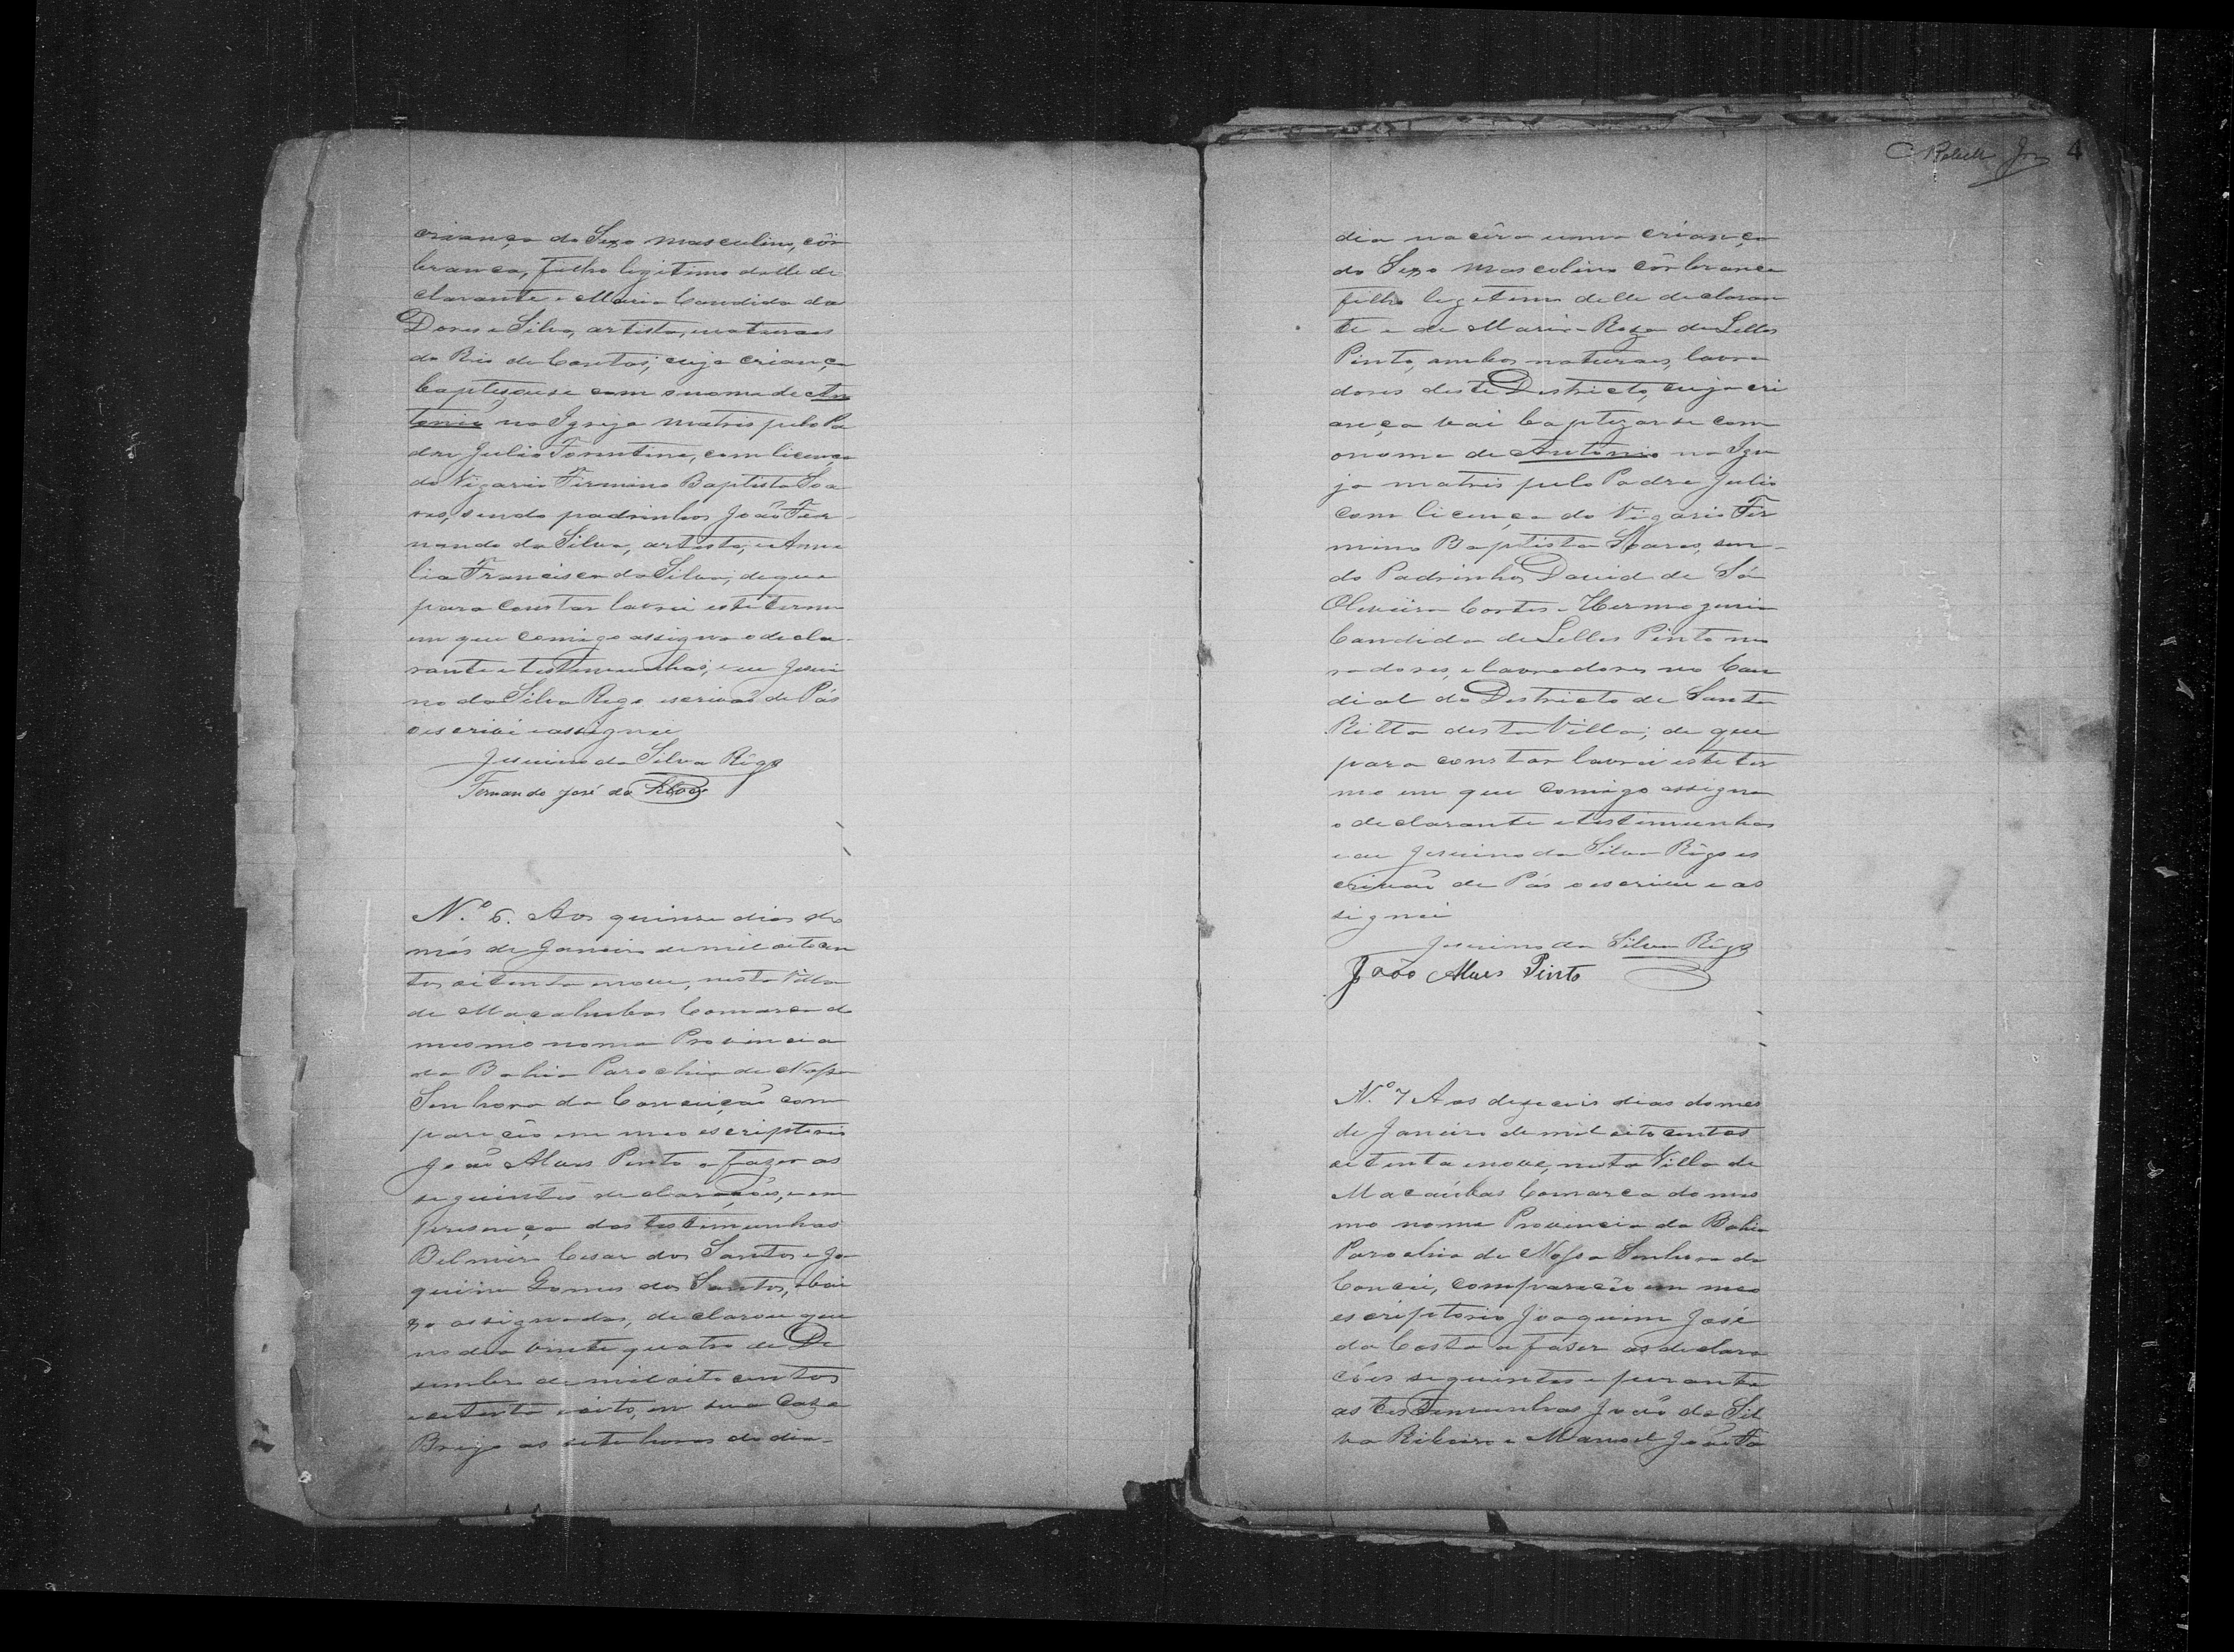 criança do Sexo masculino, côr
branca, filho legitimo delle de
clarante e Maria Candida da
Dores e Silva, artista, naturaes
do Rio de Contas; cuja criança
baptisouse com o nome de An
tonio na Igreja matris pelo Pa
dre Julio Forentino, com licença
do Vigario Firmino Baptista Soa
res, sendo padrinhos João Fer-
nando da Silva, artista, e Ama
lia Francisca da Silva; de que
para constar lavrei este termo
em que comigo assigna o decla-
rante e testimunhas; e eu Jesui
no da Silva Rego escrivão de Pás
o escrivi e assignei
Jesuino da Silva Rêgo
Fernando José da Silva
N.º 6. Aos quinse dias do
mês de Janeiro de mil oitocen
tos oitenta e nove, nesta Villa
de Macahubas Comarca do
mesmo nome Provincia
da Bahia Parochia de Nossa
Senhora da Conceição com
pareceo em meo escriptorio
João Alves Pinto a fazer as
seguintes declarações, e em
presença das testimunhas
Belmiro Cesar dos Santos e Jo
aquim Gomes dos Santos, abai
xo assignados, declarou que
no dia vinte quatro de De
sembro de mil oito centos
e oitenta e oito, em sua Caza
Brejo as sete horas do dia-
4
dia nacêra uma criança
do Sexo mascolino côr branca
filho legitimo delle declaran
te e de Maria Roza de Lelles
Pinto, ambos naturaes, lavra
dores deste Districto, cuja cri
ança vai baptizar se com
o nome de Antonio na Igre
ja matris pelo Padre Julio
com licença do Vigario Fir
mino Baptista Soares, sen-
do Padrinhos David de Sá
Oliveira Cortes e Hermogenia
Candida de Lelles Pinto mo
radores, e lavradores no Can
dial do Districto de Santa
Ritta desta Villa; de que
para constar lavrei este ter
mo em que comigo assigna
o declarante e testimunhas
e eu Jesuino da Silva Rêgo es
crivão de Pás o escrivi e as
signei
Jesuino da Silva Rêgo
João Alves Pinto
N.º 7 Aos deseceis dias do mes
de Janeiro de mil oito centos
oitenta e nove, nesta Villa de
Macaúbas Comarca do mes
mo nome Provincia da Bahia
Parochia de Nossa Senhora da
Concei, compareceo em meo
escriptorio Joaquim José
da Costa a faser as declara
ções seguintes e perante
as testimunhas João da Sil
va Ribeiro e Manoel João Fa